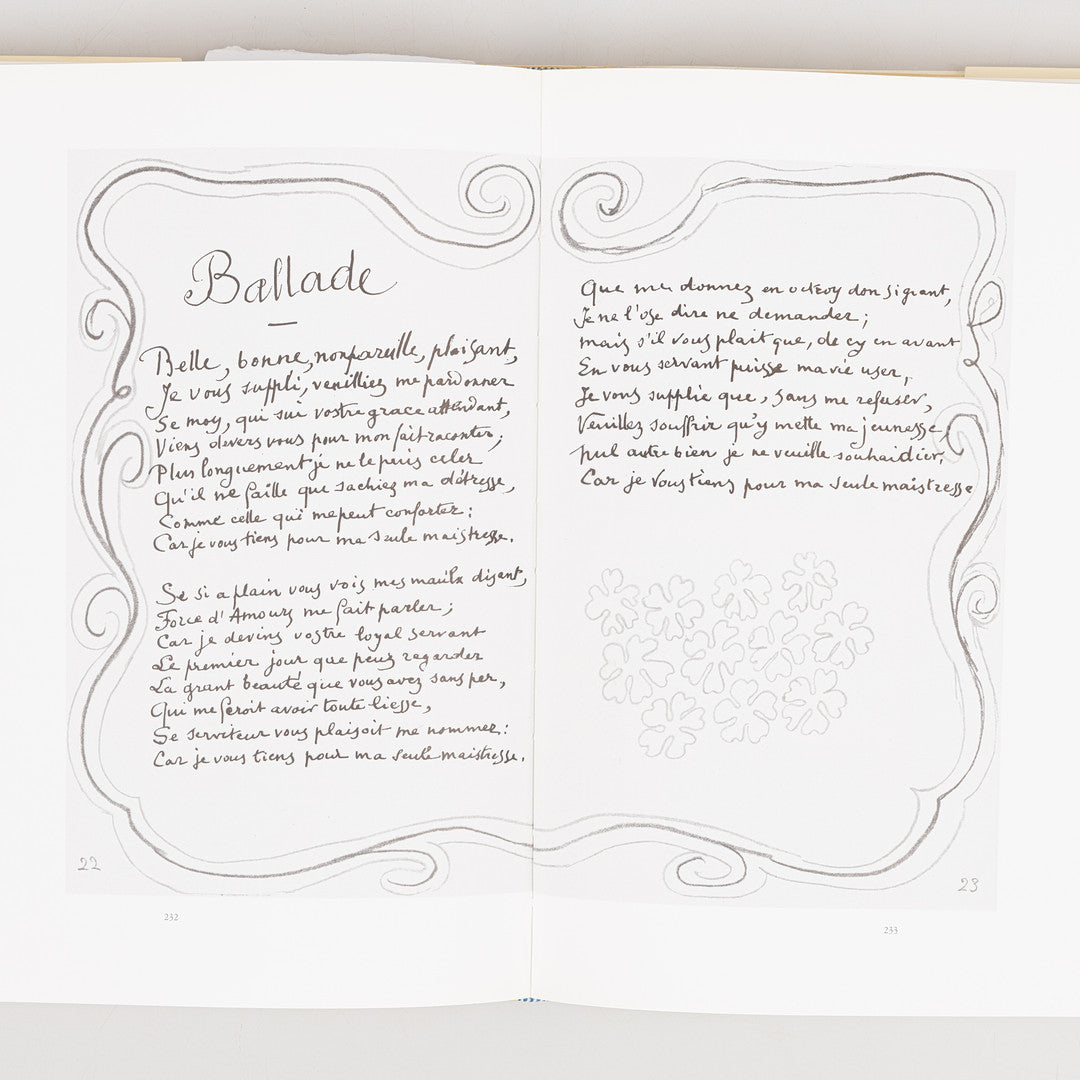 Ballade
Belle, bonne, nonpareille, plaisant,
Je vous suppli, veuilliez me pardonner
Se moy, qui sui vostre grace attendant,
Viens devers vous pour mon fait raconter;
Plus longuement je ne le puis celer
Qu'il ne faille que sachiez ma détresse,
Comme celle qui me peut conforter:
Car je vous tiens pour ma seule maistresse.
Se si a plain vous vois mes maulx disant,
Force d'Amours me fait parler;
Car je devins vostre loyal servant
Le premier jour que peuz regarder
La grant beauté que vous avez sans per,
Qui me feroit avoir toute liesse,
Se serviteur vous plaisoit me nommer:
Car je vous tiens pour ma seule maistresse.
22
232
Que me donnez en octroy don si grant,
Je ne l'ose dire ne demander;
mais s'il vous plait que, de cy en avant
En vous servant puisse ma vie user,
Je vous supplie que, sans me refuser,
Veuillez souffrir qu'y mette ma jeunesse;
nul autre bien je ne veuille souhaidier,
Car je vous tiens pour ma seule maistresse
23
233